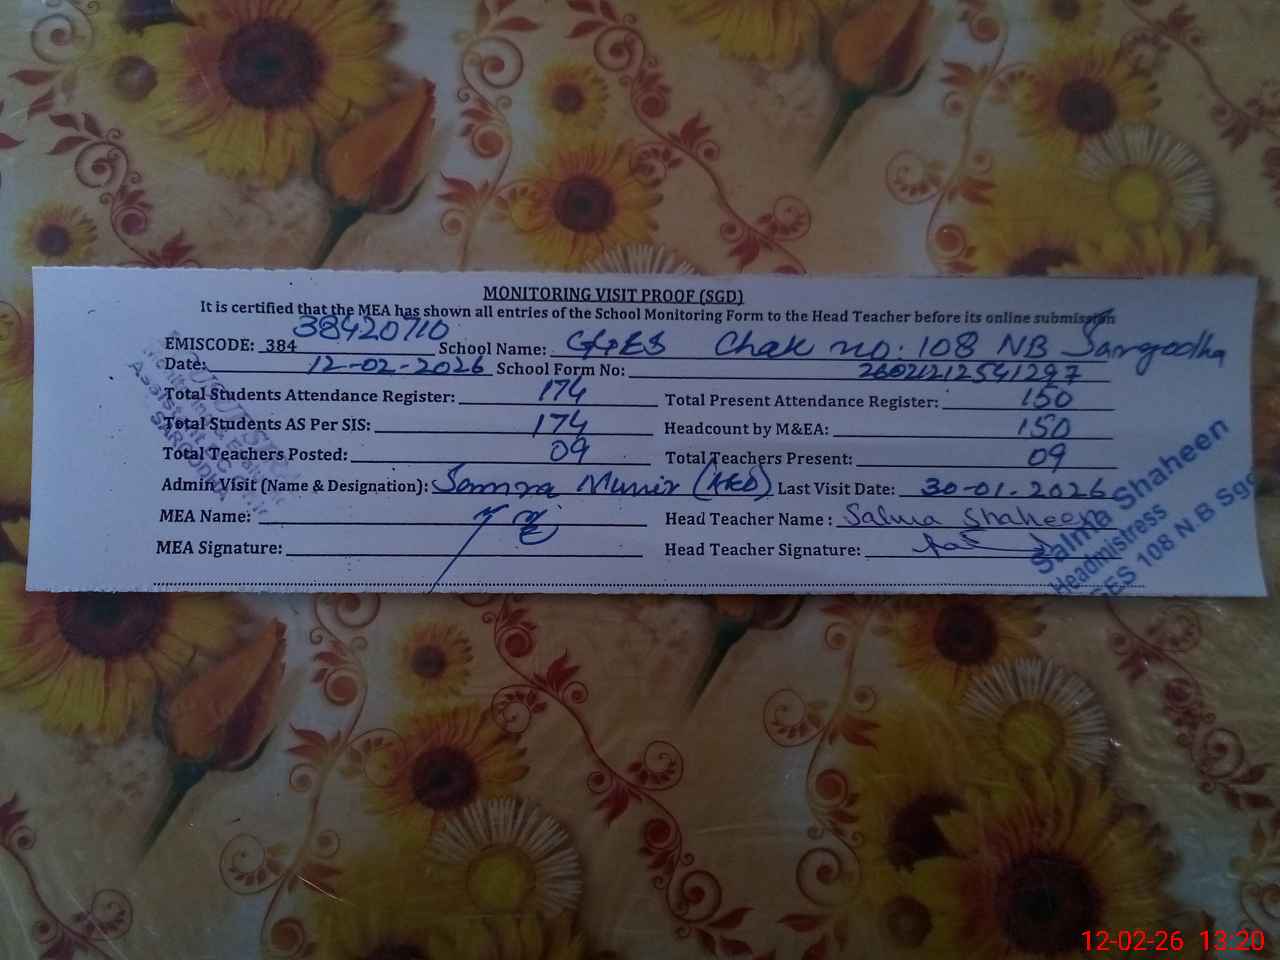 MONITORING VISIT PROOF (SGD)
It is certified that the MEA has shown all entries of the School Monitoring Form to the Head Teacher before its online submission
EMISCODE: 384 38420710 School Name: GGES Chak no. 108 NB Sargodha
Date: 12-02-2026 School Form No: 26021212541297
Total Students Attendance Register: 174 Total Present Attendance Register: 150
Total Students AS Per SIS: 174 Headcount by M&EA: 150
Total Teachers Posted: 09 Total Teachers Present: 09
Admin Visit (Name & Designation): Munir (AEO) Last Visit Date: 30-01-2026
MEA Name: Head Teacher Name : Salma Shaheen
MEA Signature: Head Teacher Signature:
Salma Shaheen
Headmistress
GES 108 N.B Sgd
SARGODHA
12-02-26 13:20